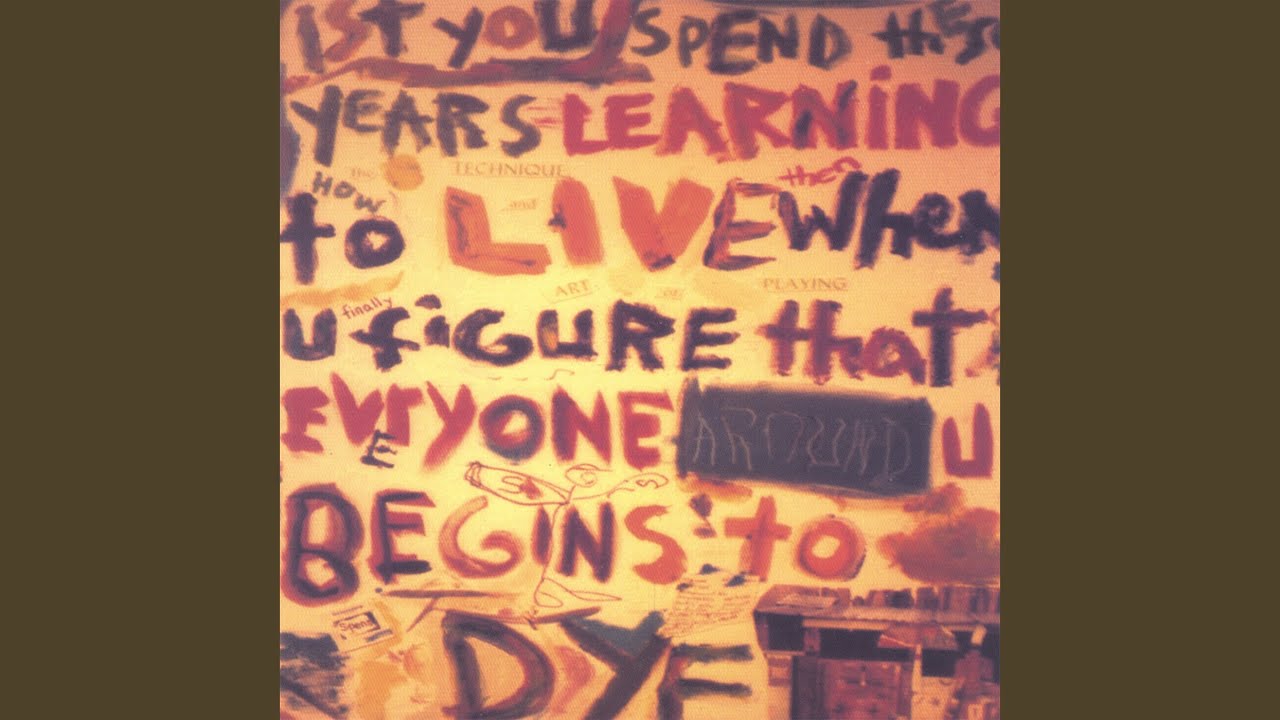 1ST YOU SPEND these
YEARS LEARNING
The TECHNIQUE
HOW and then
to LIVE When
ART OF PLAYING
finally
u fiGURE that
EVERYONE AROUND u
BEGINS to
Spent
DYE